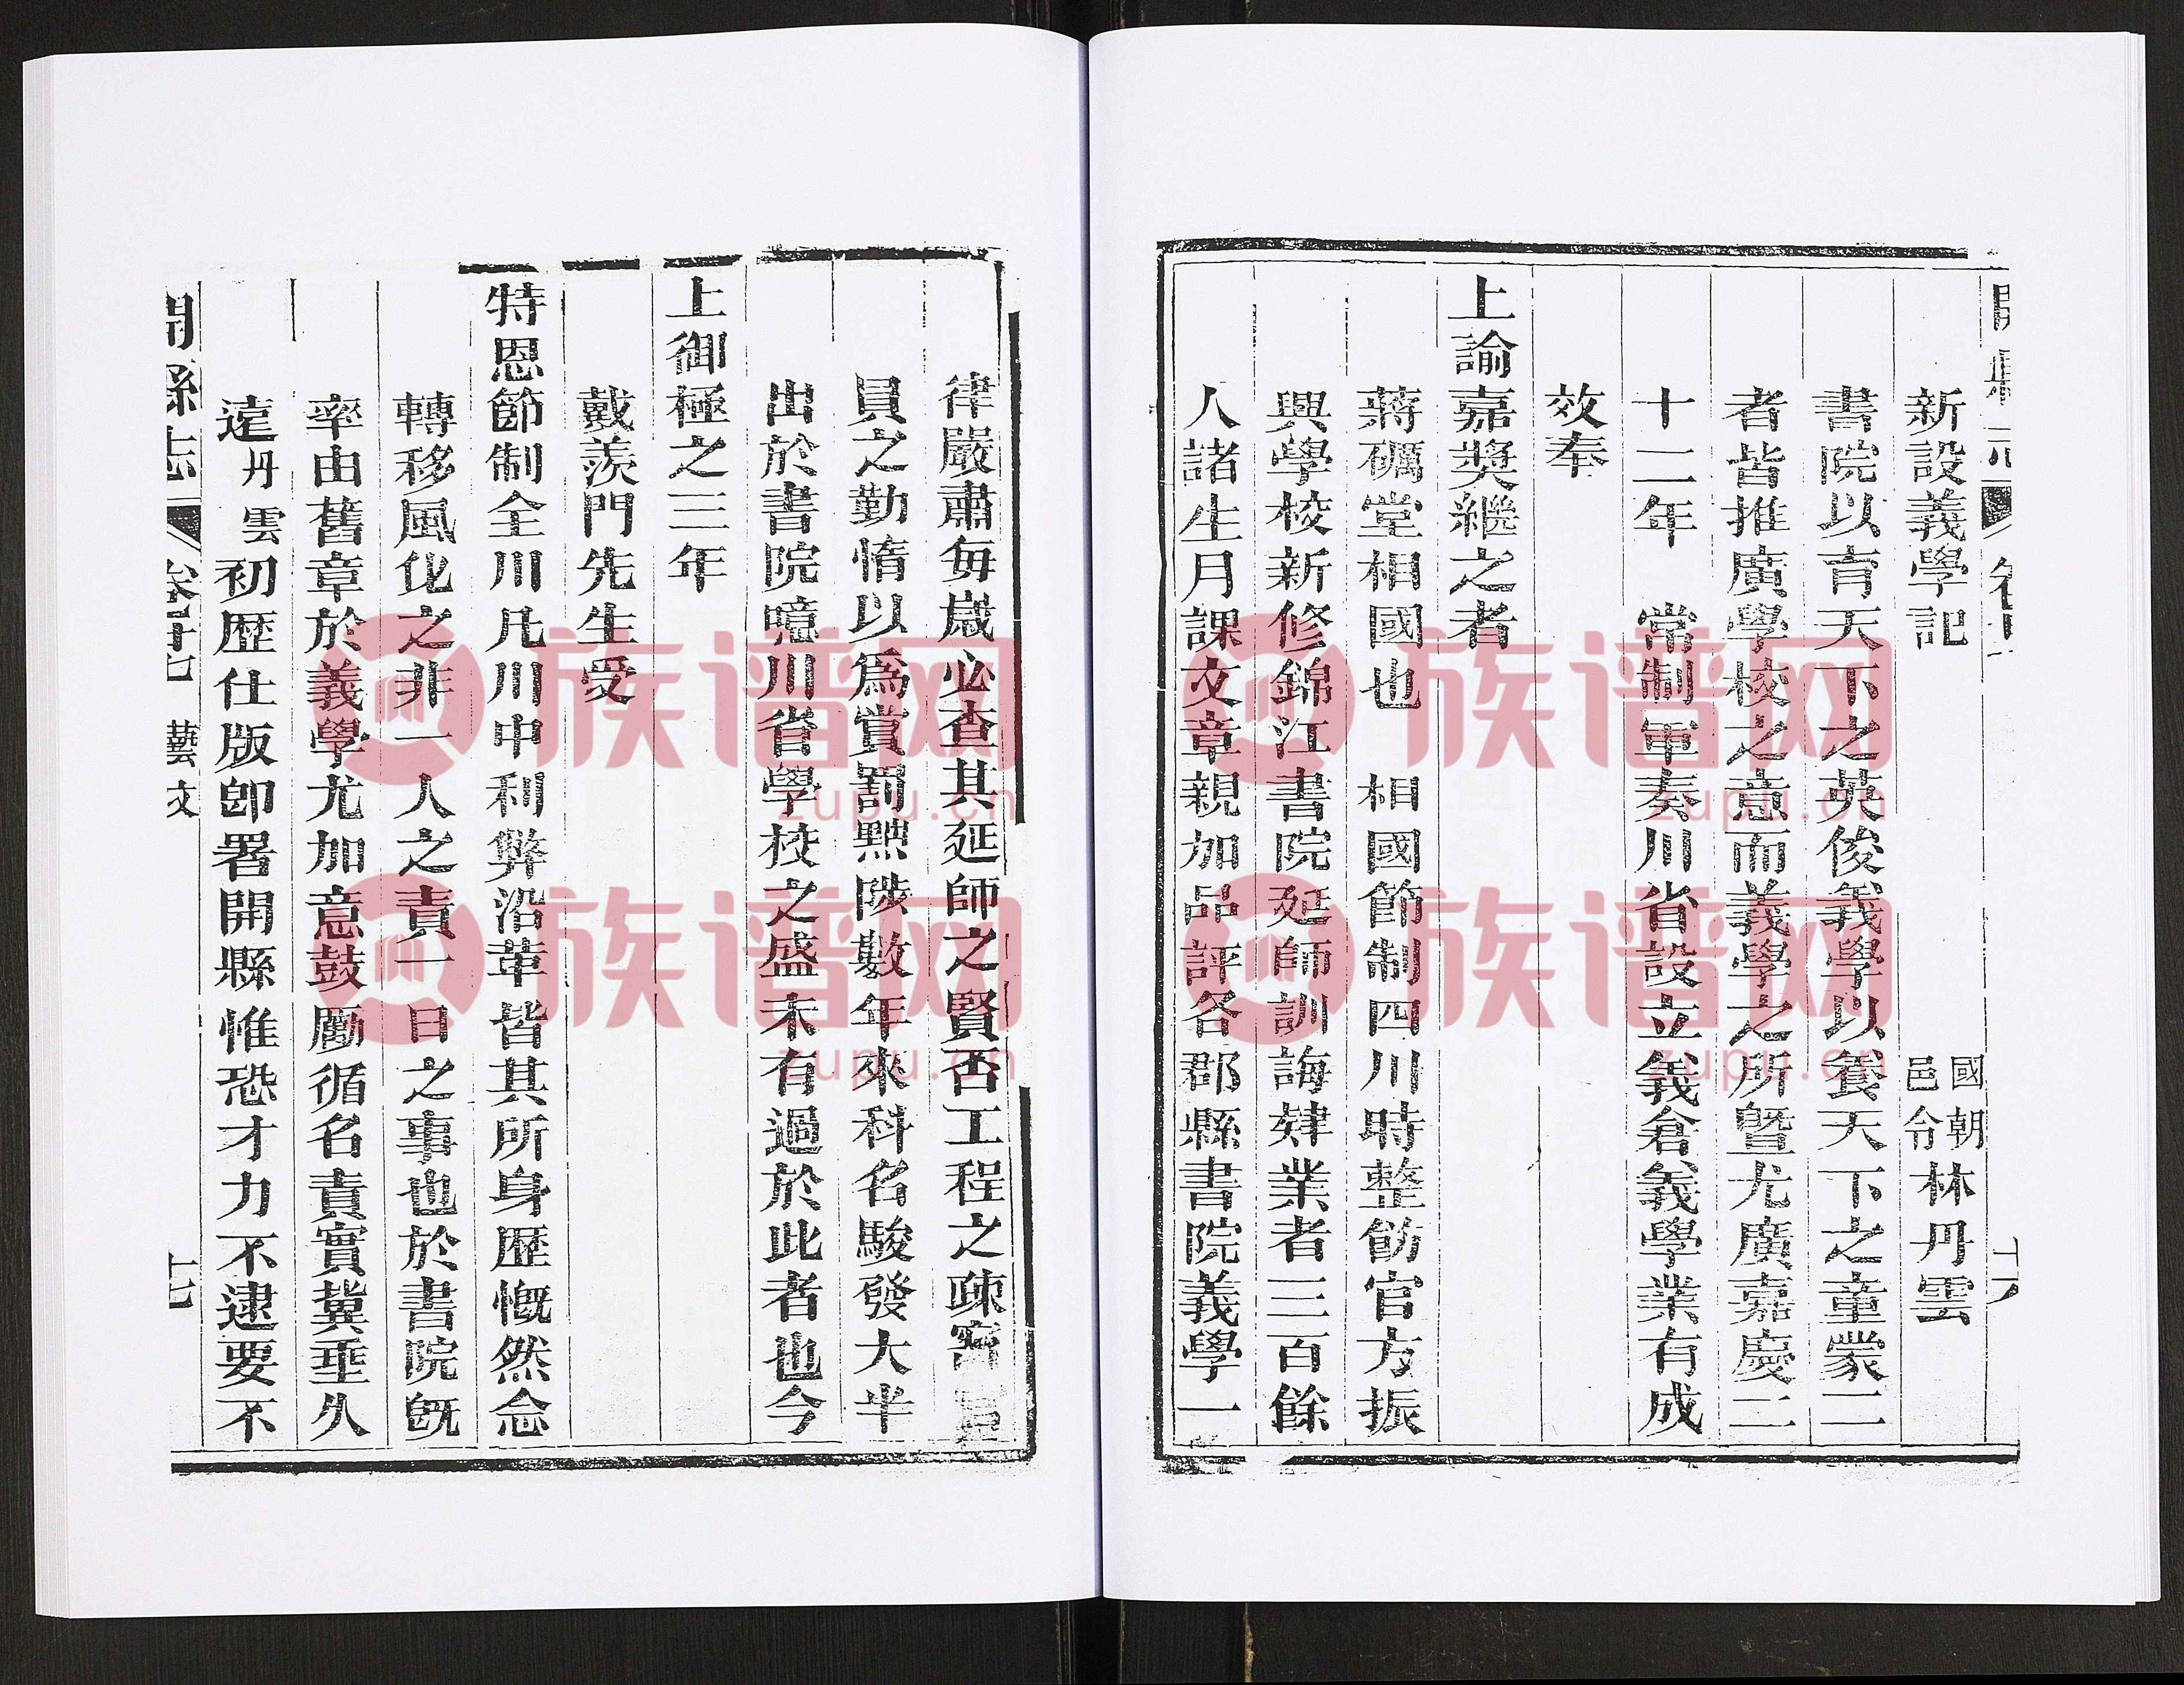 開縣志 卷 十六
新設義學記 國朝邑令林丹雲
書院以育天下之英俊義學以養天下之童蒙二
者皆推廣學校之意而義學之所暨尤廣嘉慶二
十二年 常制軍奏川省設立義倉義學業有成
效奉
上諭嘉獎繼之者
蔣礪堂相國也 相國節制四川時整飭官方振
興學校新修錦江書院延師訓誨肄業者三百餘
人諸生月課文章親加品評各郡縣書院義學一
律嚴肅每歲必查其延師之賢否工程之疎密
員之勤惰以爲賞罰黜陟數年來科名駿發大半
出於書院噫川省學校之盛未有過於此者也今
上御極之三年
戴羨門先生受
特恩節制全川凡川中利弊沿革皆其所身歷慨然念
轉移風化之非一人之責一日之事也於書院旣
率由舊章於義學尤加意鼓勵循名責實冀垂久
遠丹雲初歷仕版卽署開縣惟恐才力不逮要不
開縣志 卷二十七 藝文 十七
族谱网
zupu.cn
族谱网
zupu.cn
族谱网
zupu.cn
族谱网
zupu.cn